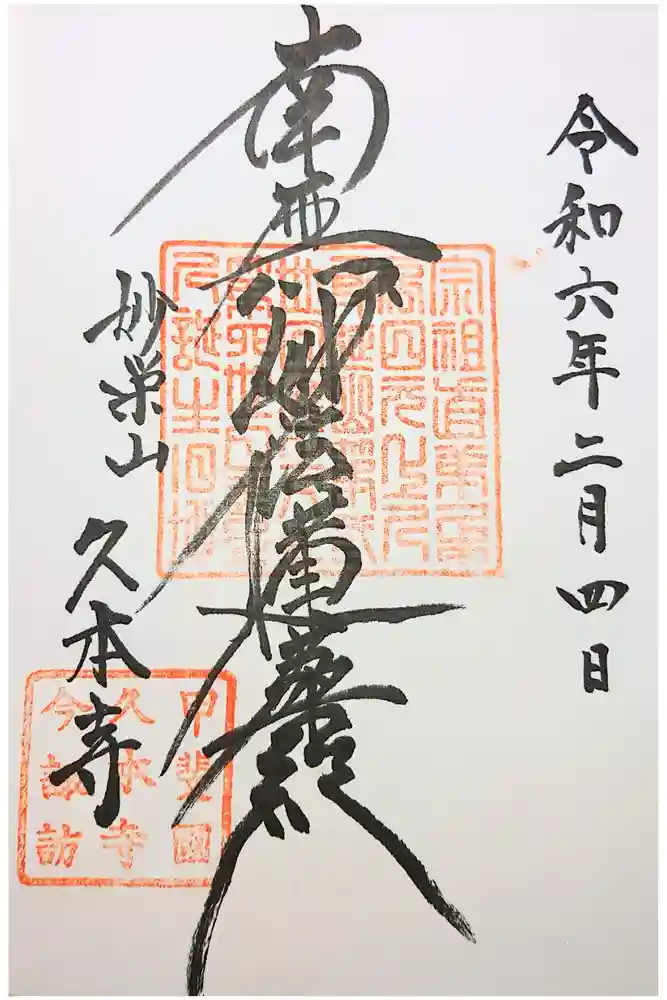 令和六年二月四日
南無妙法蓮華經
妙栄山
久本寺
甲斐國
久本寺
今諏訪